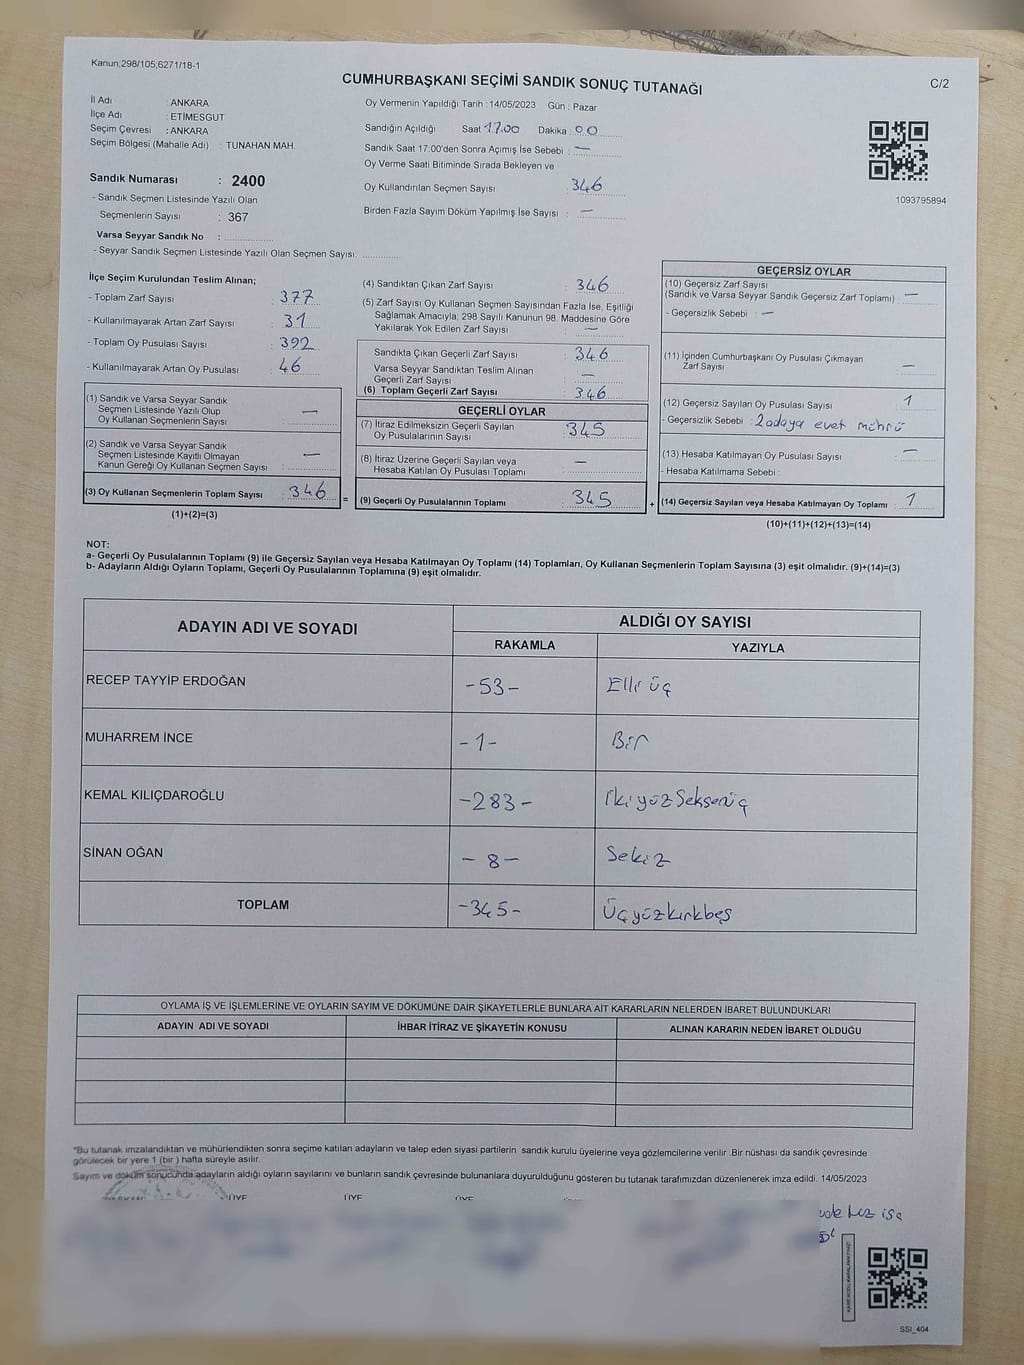 Kanun;298/105;6271/18-1
CUMHURBAŞKANI SEÇİMİ SANDIK SONUÇ TUTANAĞI
C/2
İl Adı : ANKARA
İlçe Adı : ETİMESGUT
Seçim Çevresi : ANKARA
Seçim Bölgesi (Mahalle Adı) : TUNAHAN MAH.
Sandık Numarası : 2400
- Sandık Seçmen Listesinde Yazılı Olan
Seçmenlerin Sayısı : 367
Varsa Seyyar Sandık No :
- Seyyar Sandık Seçmen Listesinde Yazılı Olan Seçmen Sayısı:
Oy Vermenin Yapıldığı Tarih : 14/05/2023 Gün : Pazar
Sandığın Açıldığı Saat 17.00 Dakika : 00
Sandık Saat 17:00'den Sonra Açımış İse Sebebi : —
Oy Verme Saati Bitiminde Sırada Bekleyen ve
Oy Kullandırılan Seçmen Sayısı : 346
Birden Fazla Sayım Döküm Yapılmış İse Sayısı : —
1093795894
İlçe Seçim Kurulundan Teslim Alınan;
- Toplam Zarf Sayısı : 377
- Kullanılmayarak Artan Zarf Sayısı : 31
- Toplam Oy Pusulası Sayısı : 392
- Kullanılmayarak Artan Oy Pusulası : 46
(1) Sandık ve Varsa Seyyar Sandık
Seçmen Listesinde Yazılı Olup
Oy Kullanan Seçmenlerin Sayısı : —
(2) Sandık ve Varsa Seyyar Sandık
Seçmen Listesinde Kayıtlı Olmayan
Kanun Gereği Oy Kullanan Seçmen Sayısı : —
(3) Oy Kullanan Seçmenlerin Toplam Sayısı : 346
(1)+(2)=(3)
=
(4) Sandıktan Çıkan Zarf Sayısı : 346
(5) Zarf Sayısı Oy Kullanan Seçmen Sayısından Fazla İse, Eşitliği
Sağlamak Amacıyla; 298 Sayılı Kanunun 98. Maddesine Göre
Yakılarak Yok Edilen Zarf Sayısı : —
Sandıkta Çıkan Geçerli Zarf Sayısı : 346
Varsa Seyyar Sandıktan Teslim Alınan
Geçerli Zarf Sayısı : —
(6) Toplam Geçerli Zarf Sayısı : 346
GEÇERLİ OYLAR
(7) İtiraz Edilmeksizin Geçerli Sayılan
Oy Pusulalarının Sayısı : 345
(8) İtiraz Üzerine Geçerli Sayılan veya
Hesaba Katılan Oy Pusulası Toplamı : —
(9) Geçerli Oy Pusulalarının Toplamı : 345
+
GEÇERSİZ OYLAR
(10) Geçersiz Zarf Sayısı
(Sandık ve Varsa Seyyar Sandık Geçersiz Zarf Toplamı) : —
- Geçersizlik Sebebi : —
(11) İçinden Cumhurbaşkanı Oy Pusulası Çıkmayan
Zarf Sayısı : —
(12) Geçersiz Sayılan Oy Pusulası Sayısı : 1
- Geçersizlik Sebebi : 2 adaya evet mührü
(13) Hesaba Katılmayan Oy Pusulası Sayısı : —
- Hesaba Katılmama Sebebi :
(14) Geçersiz Sayılan veya Hesaba Katılmayan Oy Toplamı : 1
(10)+(11)+(12)+(13)=(14)
NOT:
a- Geçerli Oy Pusulalarının Toplamı (9) ile Geçersiz Sayılan veya Hesaba Katılmayan Oy Toplamı (14) Toplamları, Oy Kullanan Seçmenlerin Toplam Sayısına (3) eşit olmalıdır. (9)+(14)=(3)
b- Adayların Aldığı Oyların Toplamı, Geçerli Oy Pusulalarının Toplamına (9) eşit olmalıdır.
ADAYIN ADI VE SOYADI
ALDIĞI OY SAYISI
RAKAMLA YAZIYLA
RECEP TAYYİP ERDOĞAN -53- Elli üç
MUHARREM İNCE -1- Bir
KEMAL KILIÇDAROĞLU -283- İkiyüzSeksenüç
SİNAN OĞAN -8- Sekiz
TOPLAM -345- Üçyüzkırkbeş
OYLAMA İŞ VE İŞLEMLERİNE VE OYLARIN SAYIM VE DÖKÜMÜNE DAİR ŞİKAYETLERLE BUNLARA AİT KARARLARIN NELERDEN İBARET BULUNDUKLARI
ADAYIN ADI VE SOYADI İHBAR İTİRAZ VE ŞİKAYETİN KONUSU ALINAN KARARIN NEDEN İBARET OLDUĞU
*Bu tutanak imzalandıktan ve mühürlendikten sonra seçime katılan adayların ve talep eden siyasi partilerin sandık kurulu üyelerine veya gözlemcilerine verilir .Bir nüshası da sandık çevresinde
görülecek bir yere 1 (bir ) hafta süreyle asılır.
Sayım ve döküm sonucunda adayların aldığı oyların sayılarını ve bunların sandık çevresinde bulunanlara duyurulduğunu gösteren bu tutanak tarafımızdan düzenlenerek imza edildi. 14/05/2023
ÜYE ÜYE ÜYE
SSI_404